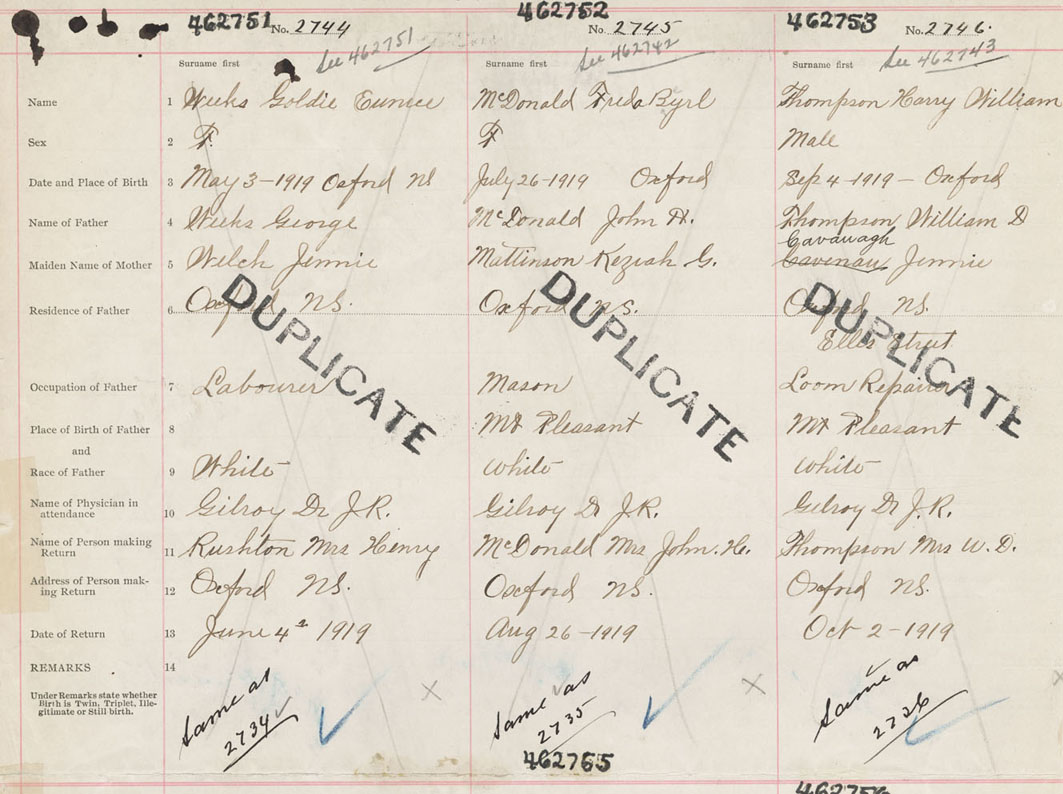 462751 No. 2744 462752 No. 2745 462753 No. 2746.
See 462751 See 462742 See 462743
Surname first Surname first Surname first
Name 1 Weeks Goldie Eunice McDonald Freda Byrl Thompson Harry William
Sex 2 F. F Male
Date and Place of Birth 3 May 3-1919 Oxford NS July 26-1919 Oxford Sep 4-1919- Oxford
Name of Father 4 Weeks George McDonald John H. Thompson William D
Cavanagh
Maiden Name of Mother 5 Welch Jennie Mattinson Keziah G. Cavenau Jennie
Residence of Father 6 Oxford NS. Oxford N.S. Oxford NS.
Ellis Street
DUPLICATE DUPLICATE DUPLICATE
Occupation of Father 7 Labourer Mason Loom Repairer
Place of Birth of Father 8 Mt Pleasant Mt Pleasant
and
Race of Father 9 White White White
Name of Physician in
attendance 10 Gilroy Dr J.R. Gilroy Dr J.R. Gilroy Dr J.R.
Name of Person making
Return 11 Rushton Mrs Henry McDonald Mrs John. H. Thompson Mrs W. D.
Address of Person mak-
ing Return 12 Oxford NS. Oxford NS. Oxford NS.
Date of Return 13 June 4th 1919 Aug 26-1919 Oct 2-1919
REMARKS 14
Under Remarks state whether
Birth is Twin, Triplet, Ille-
gitimate or Still birth.
Same as Same as Same as
2734 2735 2736
462755
462756